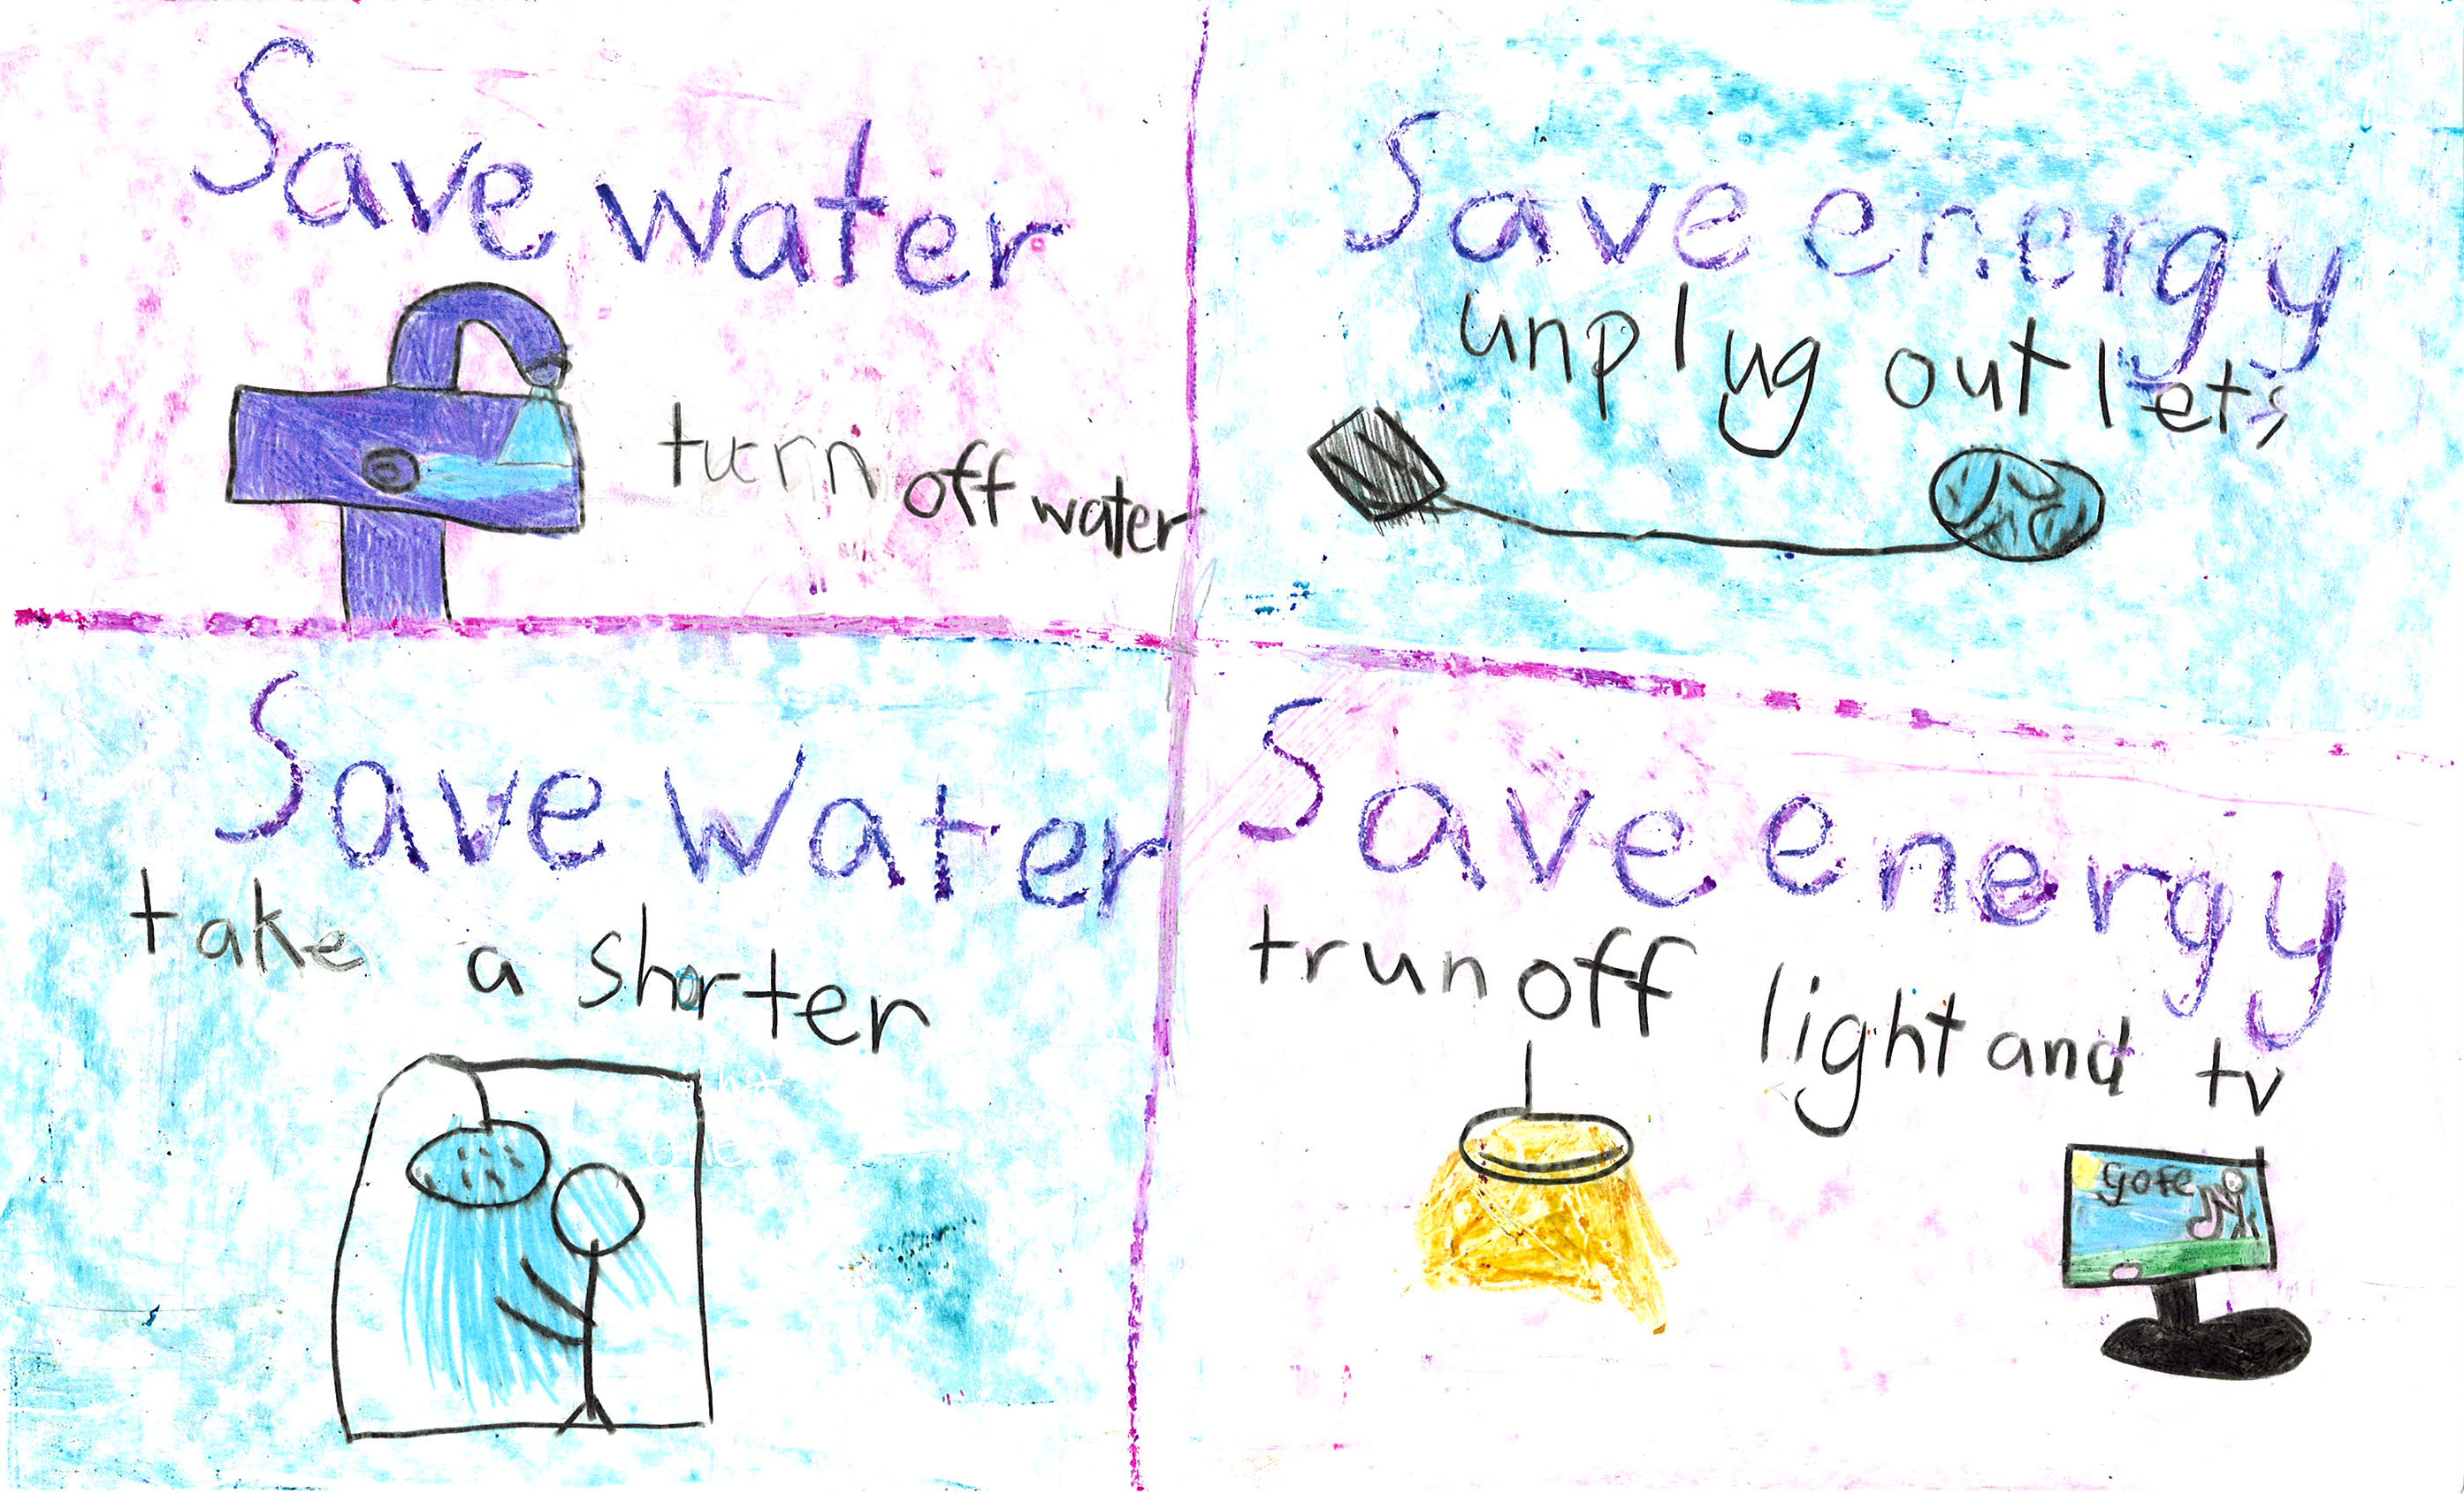 Save water
turn off water
Save energy
unplug outlets
Save water
take a shorter
Save energy
trun off light and tv
gofe